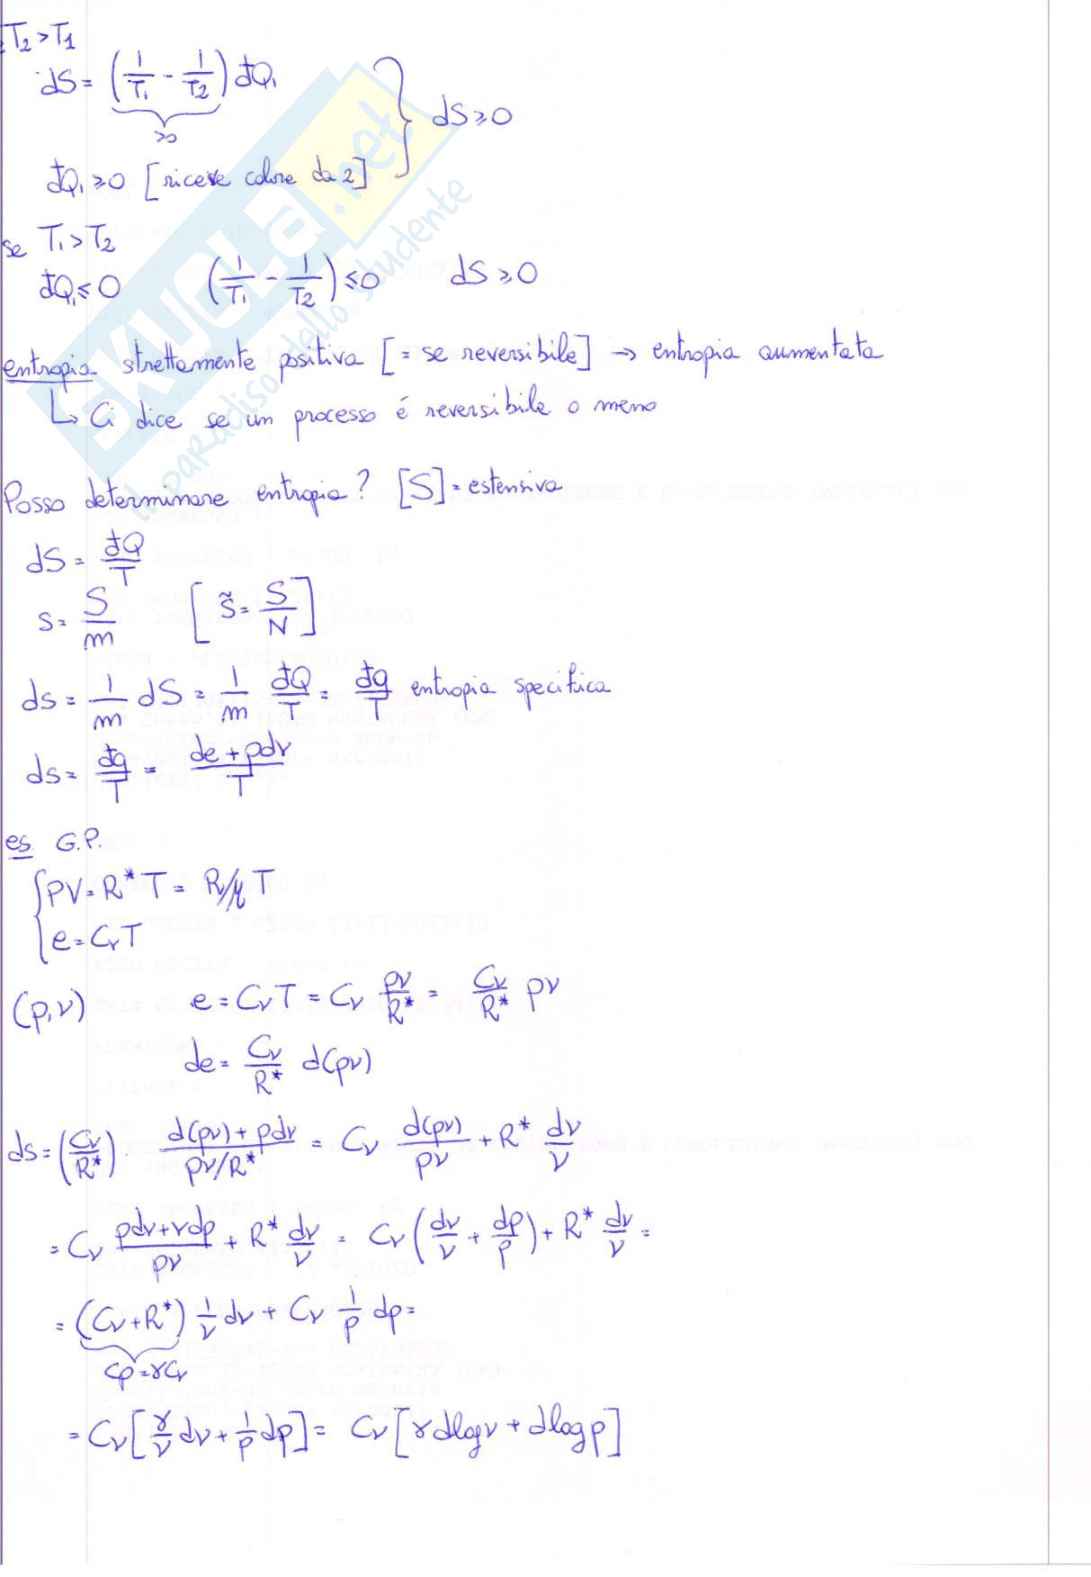 T₂>T₁
dS = (1/T₁ - 1/T₂) đQ₁
>0
dS ≥ 0
đQ₁ ≥ 0 [riceve calore da 2]
se T₁ > T₂
đQ₁ ≤ 0 (1/T₁ - 1/T₂) ≤ 0 dS ≥ 0
entropia strettamente positiva [= se reversibile] → entropia aumentata
↳ Ci dice se un processo é reversibile o meno
Posso determinare entropia? [S] = estensiva
dS = đQ/T
s = S/m [s̃ = S/N]
ds = 1/m dS = 1/m đQ/T = đq/T entropia specifica
ds = đq/T = (de + pdv)/T
es G.P.
{PV = R* T = R/μ T
e = Cv T
(p,v) e = Cv T = Cv pv/R* = Cv/R* pv
de = Cv/R* d(pv)
ds = (Cv/R*) · (d(pv) + pdv)/(pv/R*) = Cv d(pv)/pv + R* dv/v
= Cv (pdv + vdp)/pv + R* dv/v = Cv (dv/v + dp/p) + R* dv/v =
= (Cv + R*) 1/v dv + Cv 1/p dp =
Cp = γCv
= Cv [γ/v dv + 1/p dp] = Cv [γ dlogv + dlogp]
SKUOLA.net
il paradiso dello studente